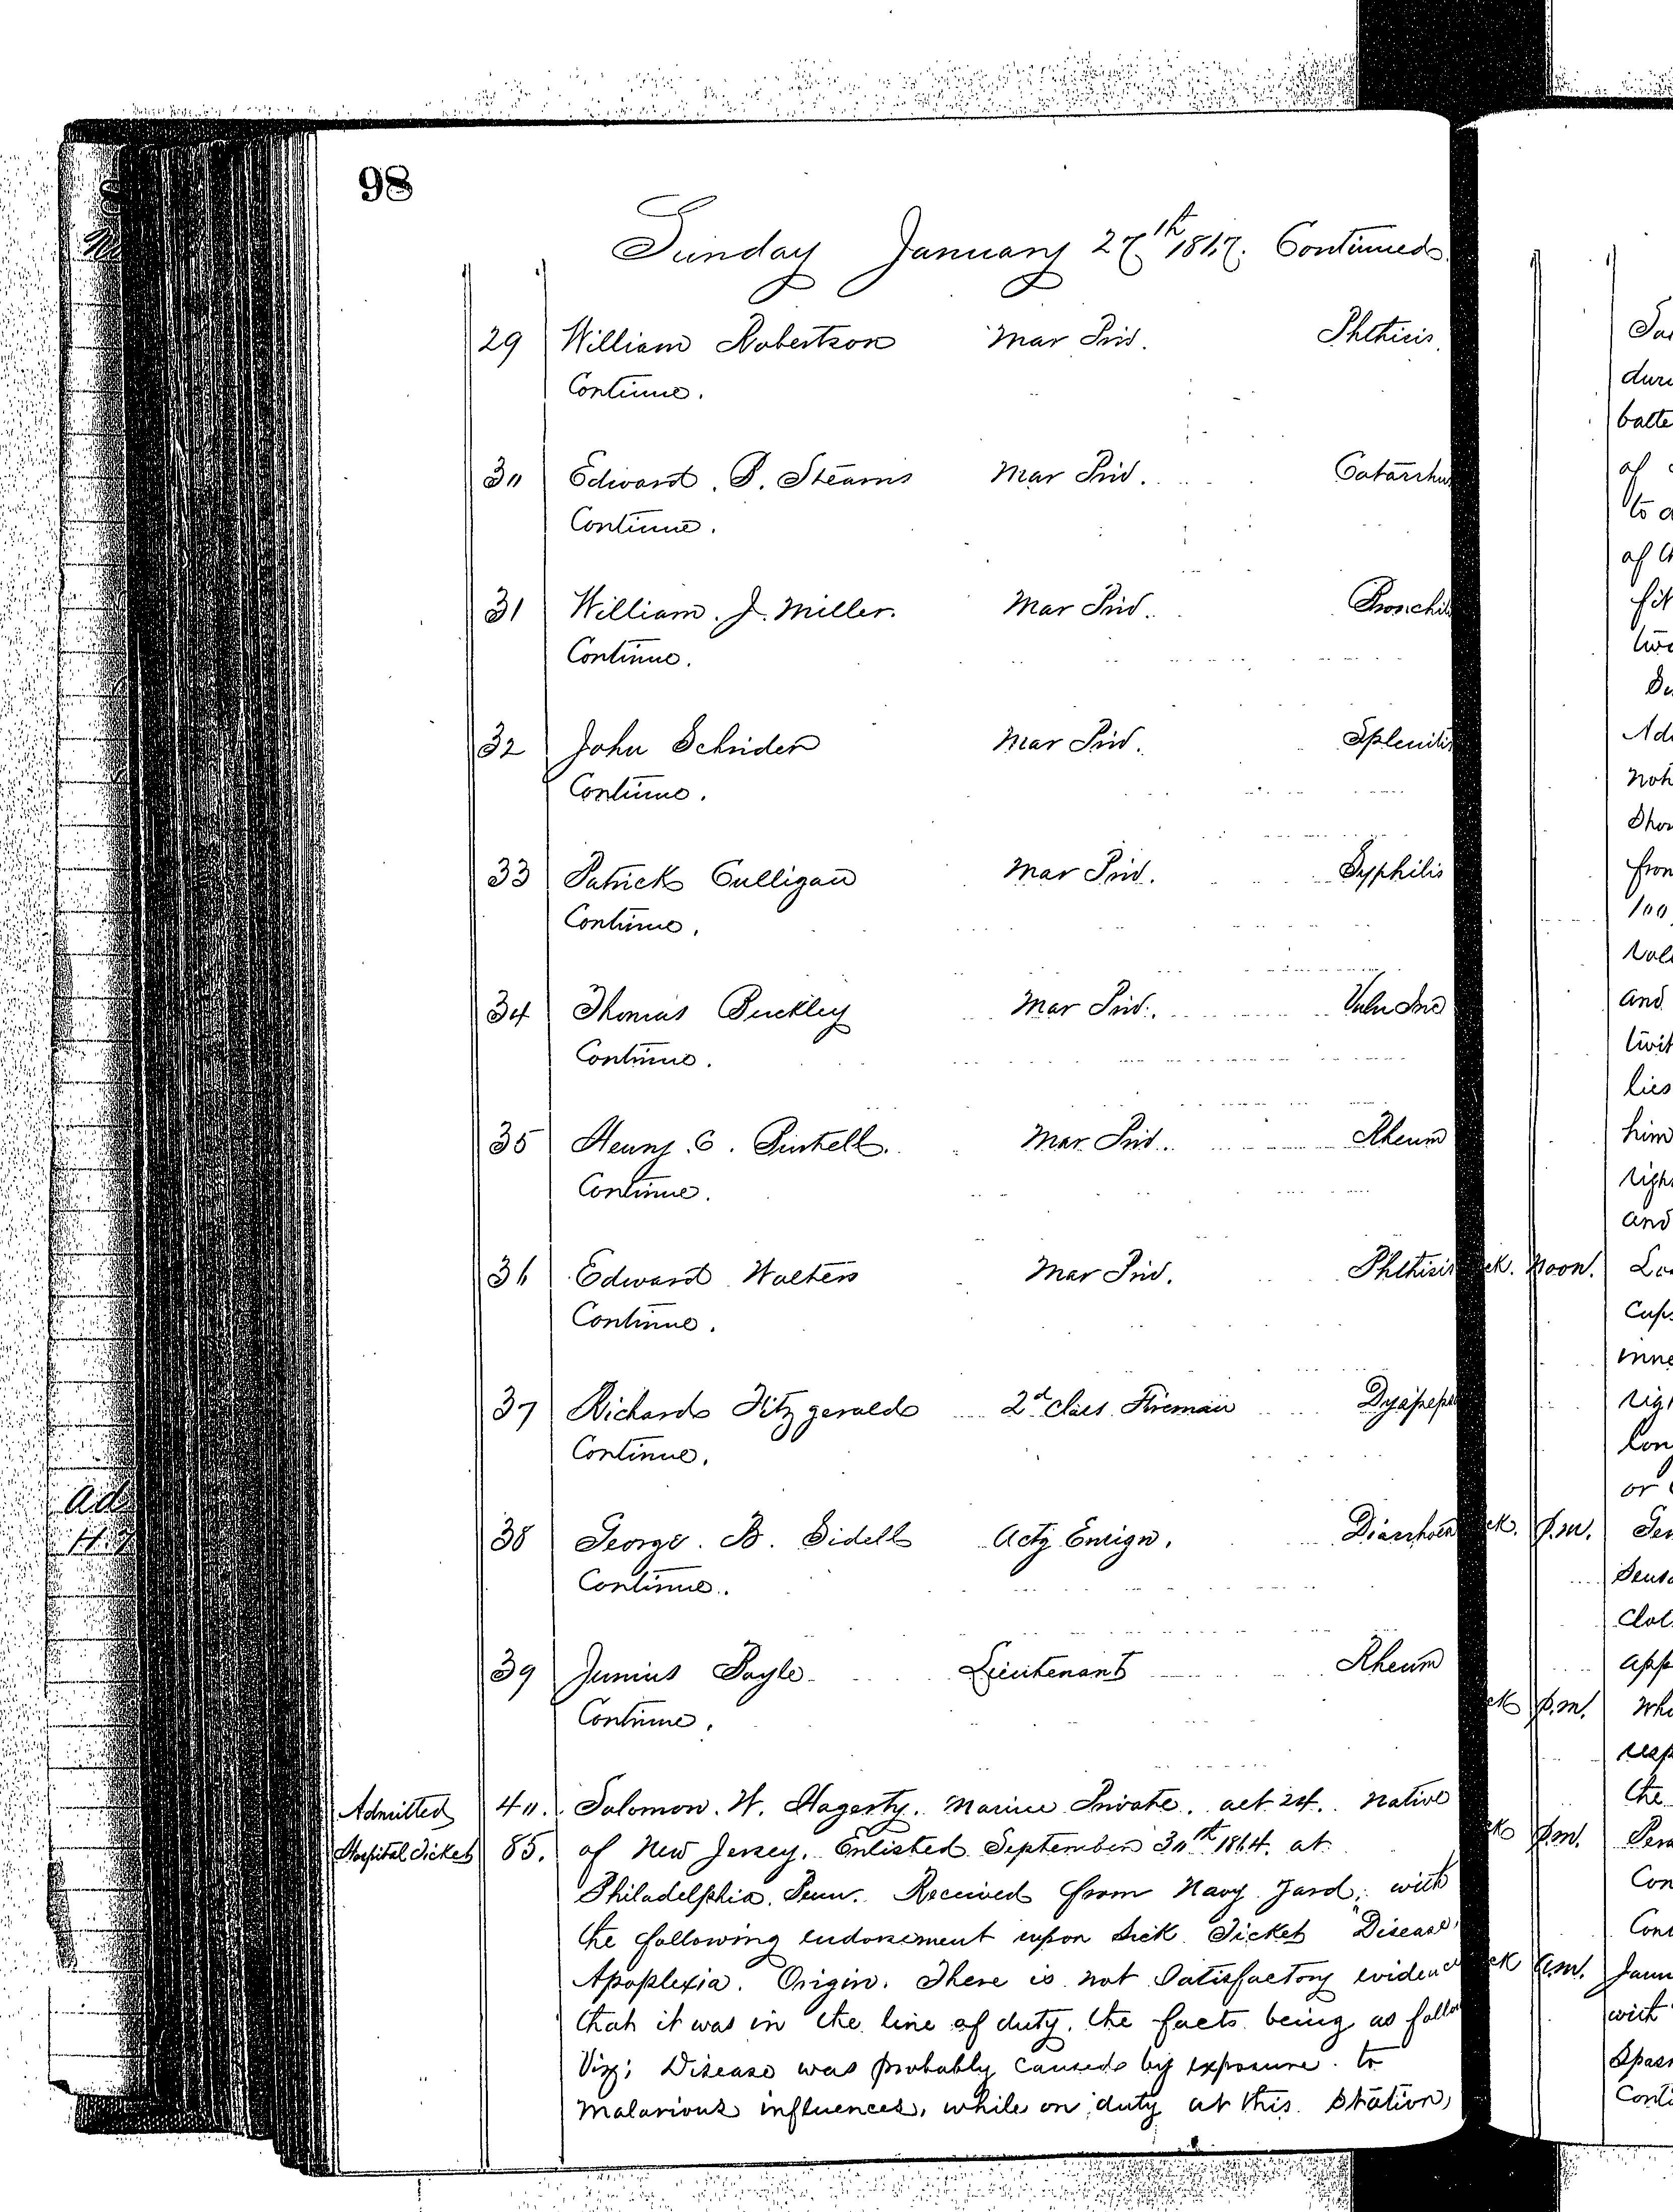 98
Sunday January 27th 1867. Continued.
29 William Robertson Mar Priv. Phthisis.
Continue.
30 Edward. P. Stearns Mar Priv. Catarrhus
Continue.
31 William. J. Miller. Mar Priv. Bronchit
Continue.
32 John Schrider Mar Priv. Splenitis
Continue.
33 Patrick Culligan Mar Priv. Syphilis
Continue.
34 Thomas Buckley Mar Priv. Vuln Inc
Continue.
35 Henry. C. Mar Priv. Rheum
Continue.
36 Edward Walters Mar Priv. Phthisis
Continue.
37 Richard Fitzgerald 2d Class Fireman Dyspeps
Continue.
38 George. B. Sidell Actg Ensign. Diarrhoea
Continue.
39 Junius Lieutenant Rheum
Continue.
Admitted 40. Solomon. W. Hagerty. Marine Private. aet 24. native
Hospital Ticket 85. of New Jersey. Enlisted September 30th 1864. at
Philadelphia. Penn. Received from Navy Yard, with
the following endorsement upon Sick Ticket "Disease,
Apoplexia. Origin. There is not Satisfactory evidence
that it was in the line of duty, the facts being as follo
Viz; Disease was probably caused by exposure to
Malarious influences, while on duty at this Station,
ck. Noon.
ck. p.m.
ck p.m.
ck p.m.
ck a.m.
during
batte
of
to a
of
two
not
from
100
and
lies
him
and
Cups
inne
or
app
the
Con
with
Conti
Ad